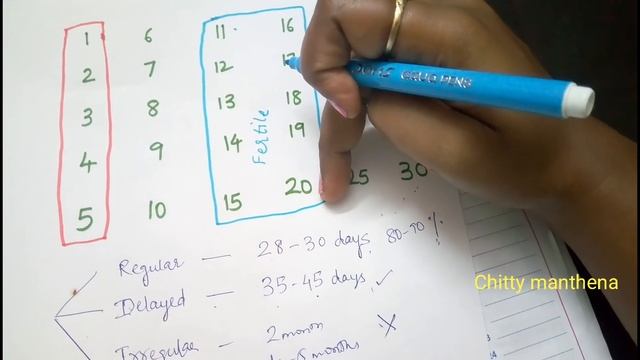 1 6 11 16
2 7 12 17
3 8 13 18
4 9 14 19
5 10 15 20 25 30
Fertile
Regular — 28-30 days 80-90%
Delayed — 35-45 days ✓
Irregular — 2 month X
months
Chitty manthena